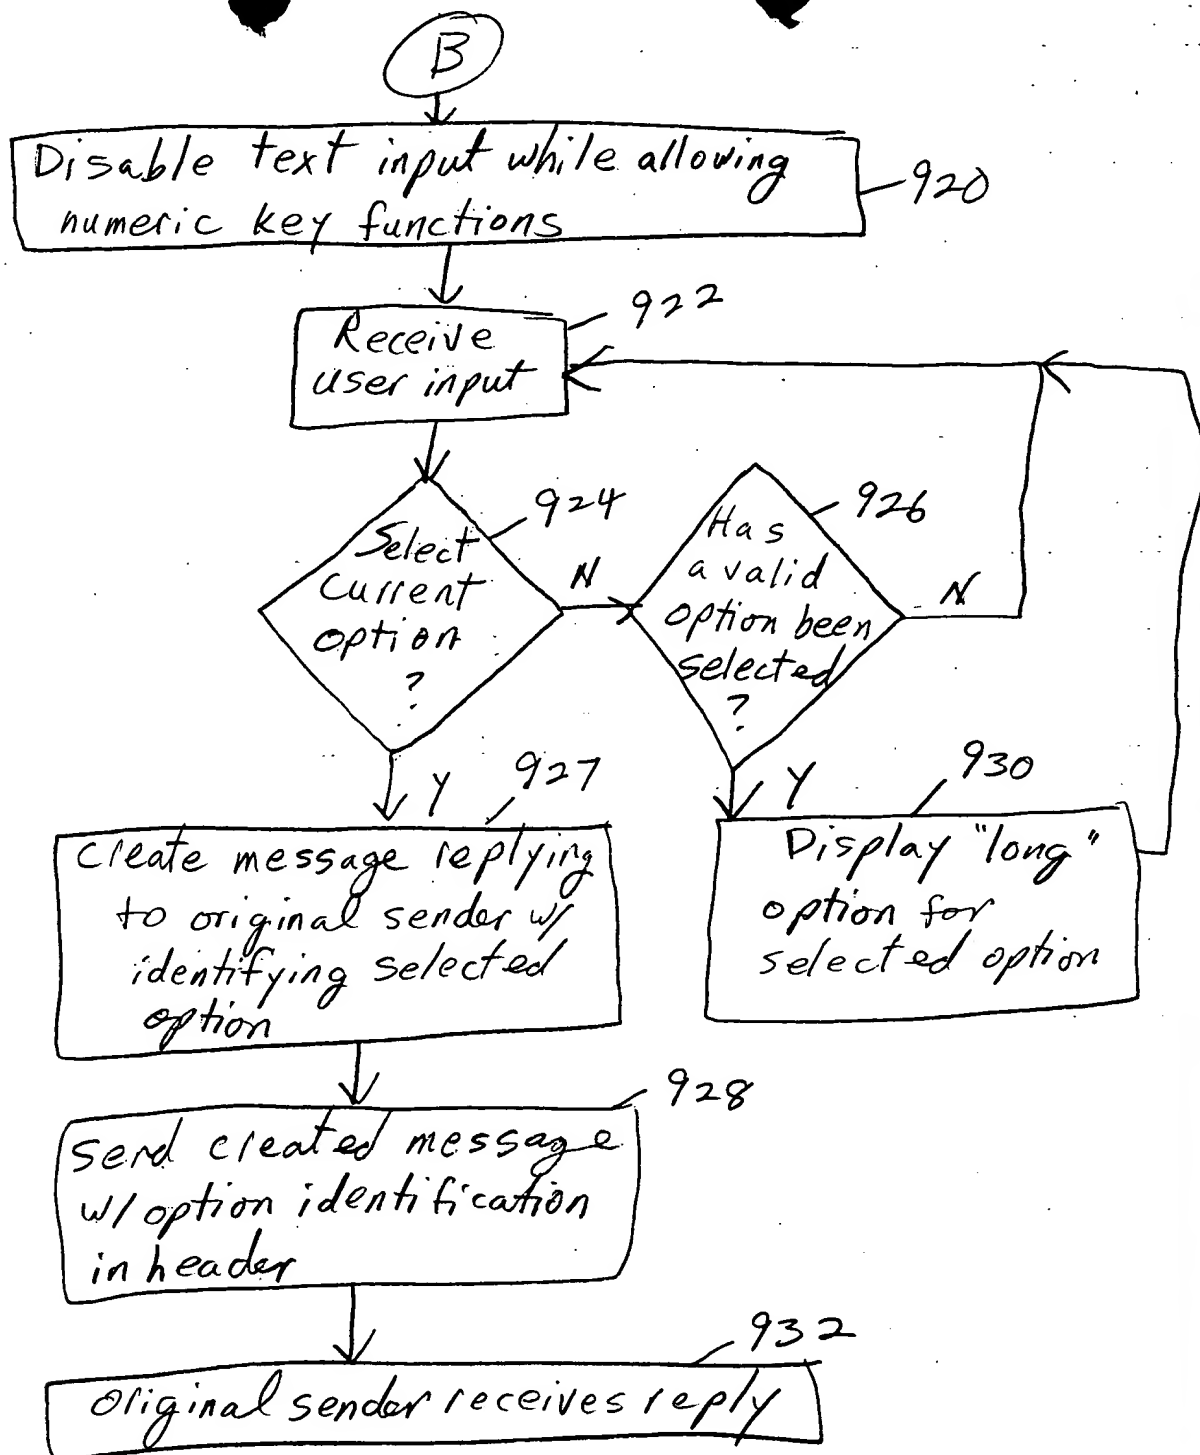 B
Disable text input while allowing
numeric key functions
920
922
Receive
user input
924
Select
current
option
?
N
926
Has
a valid
option been
selected
?
N
Y
927
Create message replying
to original sender w/
identifying selected
option
Y
930
Display "long"
option for
selected option
928
Send created message
w/ option identification
in header
932
Original sender receives reply